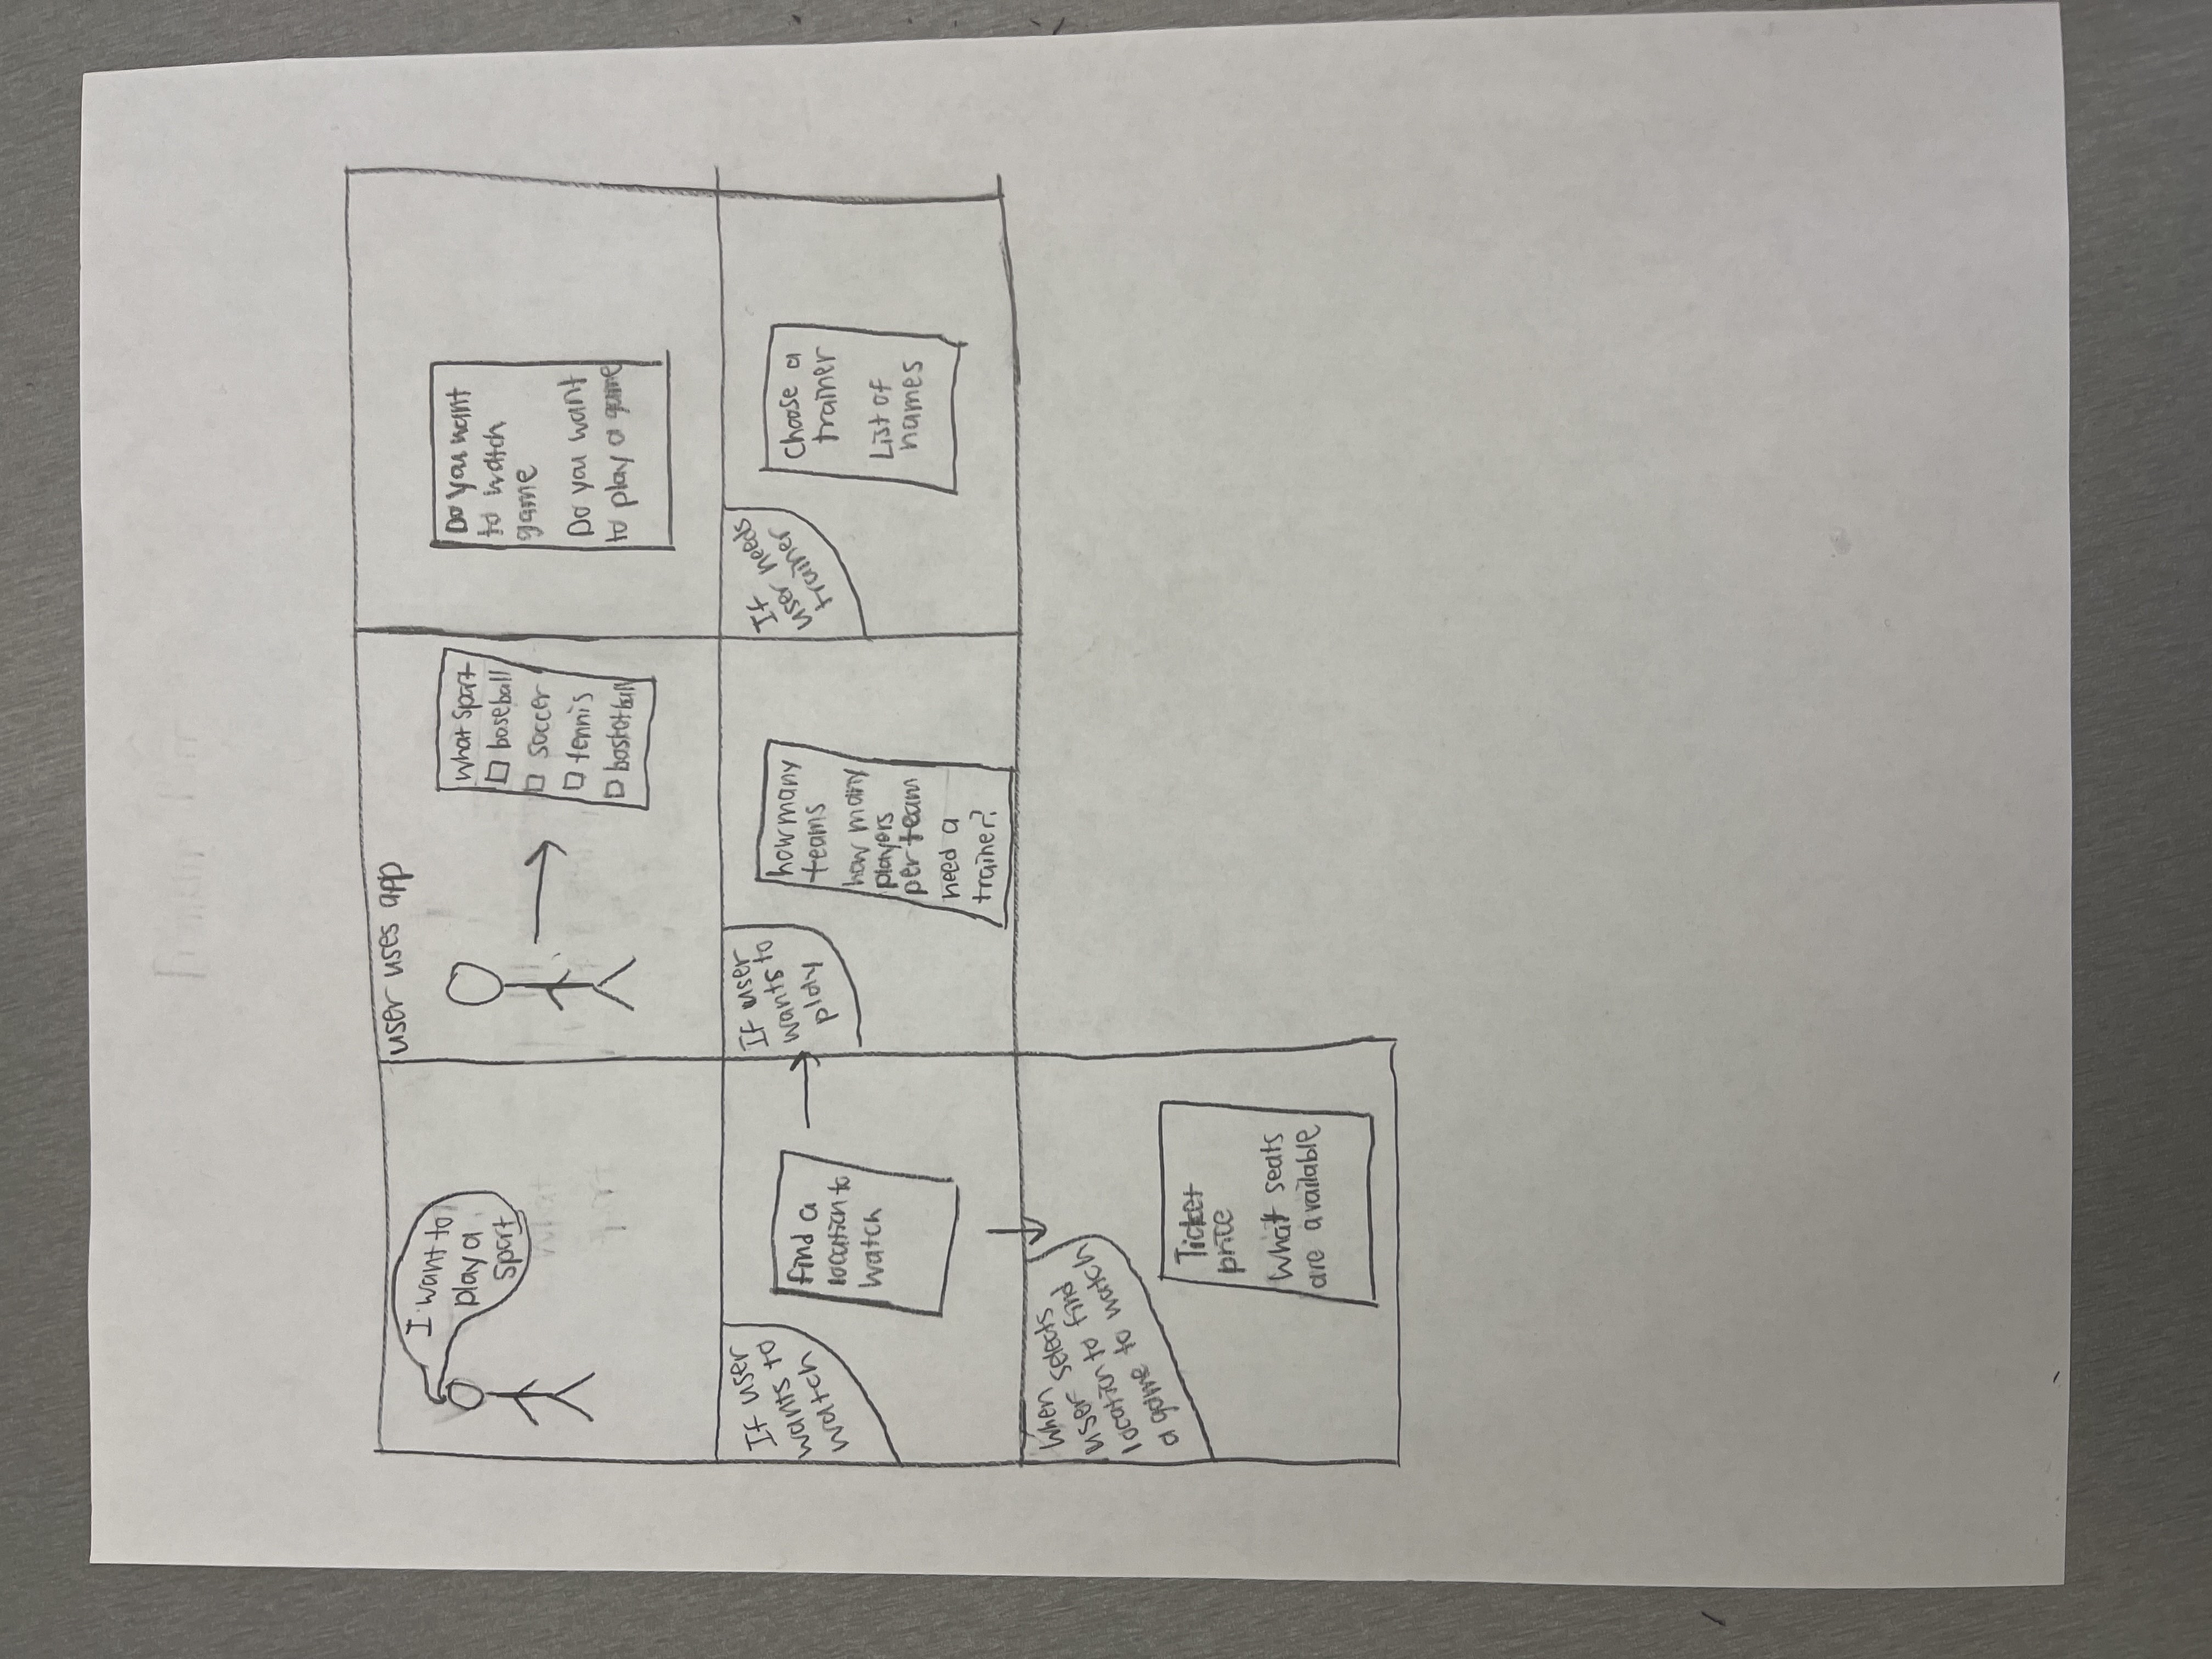 I want to
play a
sport
user uses app
what sport
baseball
soccer
tennis
basketball
Do you want
to watch
game
Do you want
to play a game
If user
wants to
watch
find a
location to
watch
If user
wants to
play
how many
teams
how many
players
per team
need a
trainer?
If
user needs
trainer
Choose a
trainer
List of
names
When
user selects
location to find
a game to watch
Ticket
price
What seats
are available